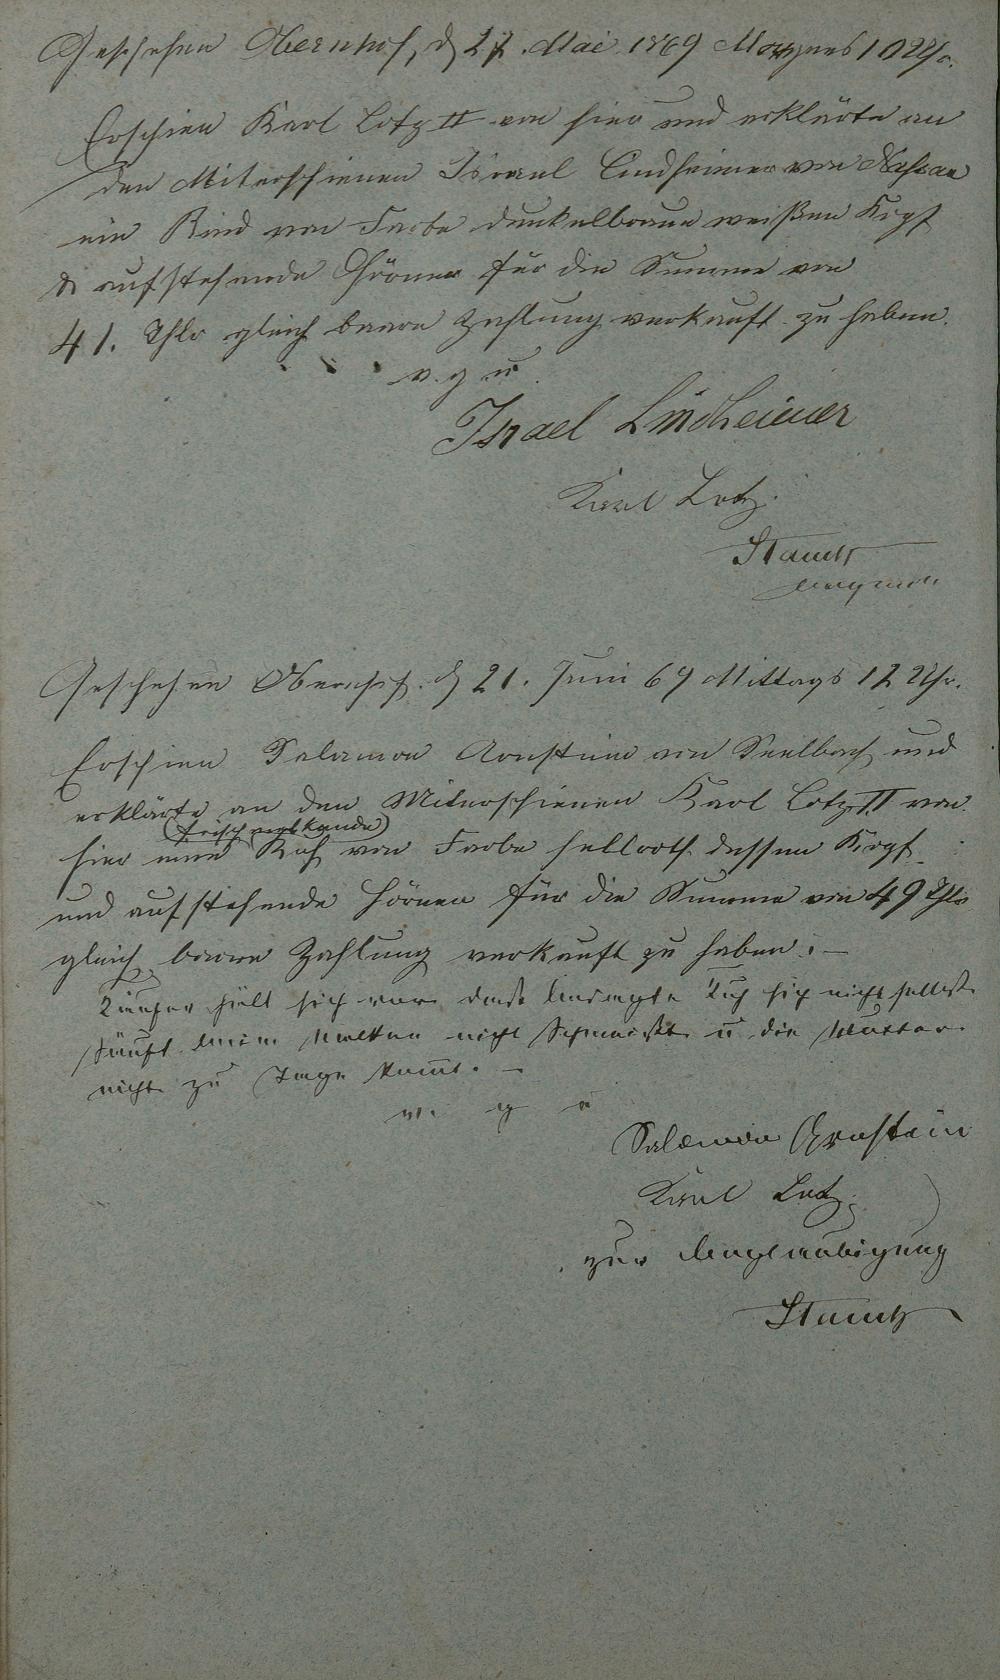 Geschehen Obernhof, d 27. Mai 1869 Morgens 10 Uhr.
Erschien Karl Lotz II von hier und erklärte an
den Miterschienen Israel Lindheimer von Nassau
ein Rind von Farbe dunkelbraun weißen Kopf
& aufstehende Hörner für die Summe von
41. Thlr gleich baare Zahlung verkauft zu haben.
v. g. u.
Israel Lindheimer
Karl Lotz.
Stautz
Geschehen Obernhof. d 21. Juni 69 Mittags 12 Uhr.
Erschien Salamon Arnstein von Seelbach und
erklärte an den Miterschienen Karl Lotz II von
(frisch melkende)
hier eine Kuh von Farbe hellroth dessen Kopf
und aufstehende Hörner für die Summe von 49 Thlr
gleich baare Zahlung verkauft zu haben. –
Käufer hält sich vor das besagte Kuh sich nicht selbst
säuft beim Melken nicht Schmeißt u die Mutter
nicht zu Tage kommt. –
v. g. u
Salamon Arnstein
Karl Lotz.
zur Beglaubigung
Stautz